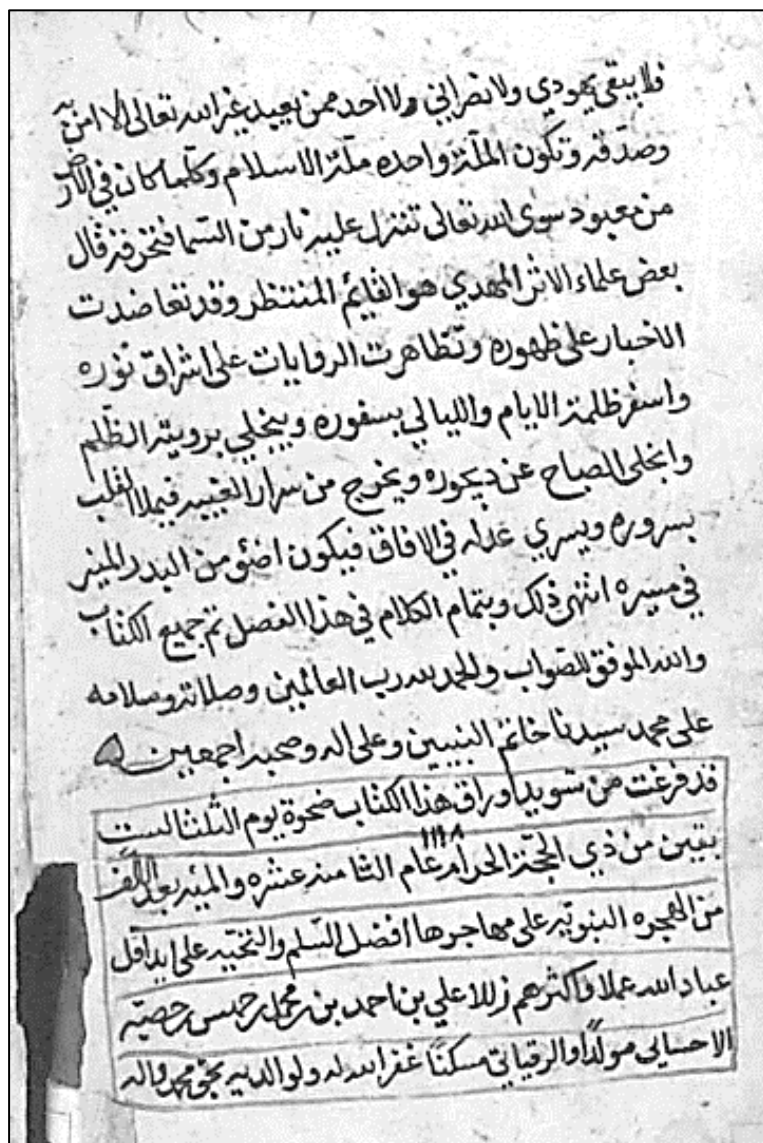 فلا يبقى يهودي ولا نصراني ولا احد ممن يعبد غير الله تعالى الا امن به
وصدقه وتكون الملة واحده ملة الاسلام وكلما كان في الارض
من معبود سوى الله تعالى تنزل عليه نار من السما فتحرقه قال
بعض علماء الاثر المهدي هو القايم المنتظر وقد تعاضدت
الاخبار على ظهوره وتظاهرت الروايات على اشراق نوره
واسفر ظلمة الايام والليالي بسفوره وينجلي برويته الظلم
وانجلى الصباح عن ديجوره ويخرج من سرار الغيبه فيملا القلب
بسروره ويسري عدله في الافاق فيكون اضئو من البدر المنير
في مسيره انتهى ذلك وبتمام الكلام في هذا الفصل تم جميع الكتاب
والله الموفق للصواب والحمد لله رب العالمين وصلاته وسلامه
على محمد سيدنا خاتم النبيين وعلى اله وصحبه اجمعين
قد فرغت من تسويد اوراق هذا الكتاب ضحوة يوم الثلثا لست
بقين من ذي الحجة الحرام عام ١١١٨ الثامنة عشره والميه بعد الالف
من الهجره النبويه على مهاجرها افضل السلم والتحيه على يد اقل
عباد الله عملا واكثرهم زللا علي بن احمد بن محمد بن خميس
الاحسايى مولدًا والرقياتي مسكنًا غفر الله له ولوالديه بحق محمد واله